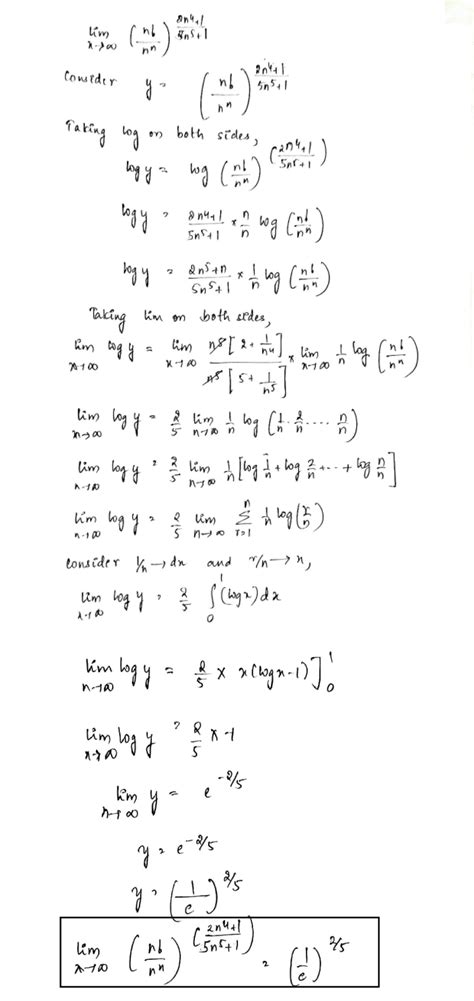 lim x→∞ (n! / nⁿ)^((2n⁴+1)/(5n⁵+1))
Consider y = (n! / nⁿ)^((2n⁴+1)/(5n⁵+1))
Taking log on both sides,
log y = log (n! / nⁿ)^((2n⁴+1)/(5n⁵+1))
log y = (2n⁴+1)/(5n⁵+1) × n/n log (n! / nⁿ)
log y = (2n⁵+n)/(5n⁵+1) × 1/n log (n! / nⁿ)
Taking lim on both sides,
lim n→∞ log y = lim x→∞ n⁵[2+1/n⁴] / n⁵[5+1/n⁵] × lim n→∞ 1/n log (n! / nⁿ)
lim n→∞ log y = 2/5 lim n→∞ 1/n log (1/n · 2/n .... n/n)
lim n→∞ log y = 2/5 lim n→∞ 1/n [log 1/n + log 2/n + ... + log n/n]
lim n→∞ log y = 2/5 lim n→∞ Σ_{r=1}^{n} 1/n log (r/n)
consider 1/n → dx and r/n → x,
lim n→∞ log y = 2/5 ∫₀¹ (log x) dx
lim n→∞ log y = 2/5 × x(log x - 1)]₀¹
lim n→∞ log y = 2/5 × -1
lim n→∞ y = e^(-2/5)
y = e^(-2/5)
y = (1/e)^(2/5)
lim n→∞ (n! / nⁿ)^((2n⁴+1)/(5n⁵+1)) = (1/e)^(2/5)